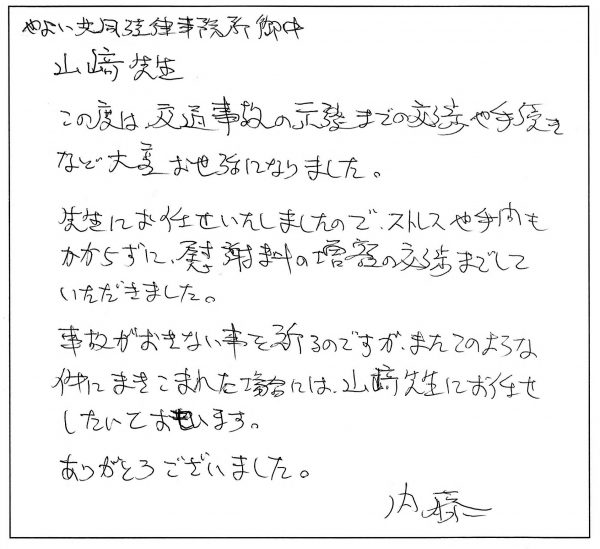 やよい共同法律事務所御中
山﨑先生
この度は、交通事故の示談までの交渉や手続き
など大変お世話になりました。
先生にお任せいたしましたので、ストレスや手間も
かからずに、慰謝料の増額の交渉までして
いただきました。
事故がおきない事を祈るのですが、またこのような
件にまきこまれた場合には、山﨑先生にお任せ
したいと思います。
ありがとうございました。
内藤